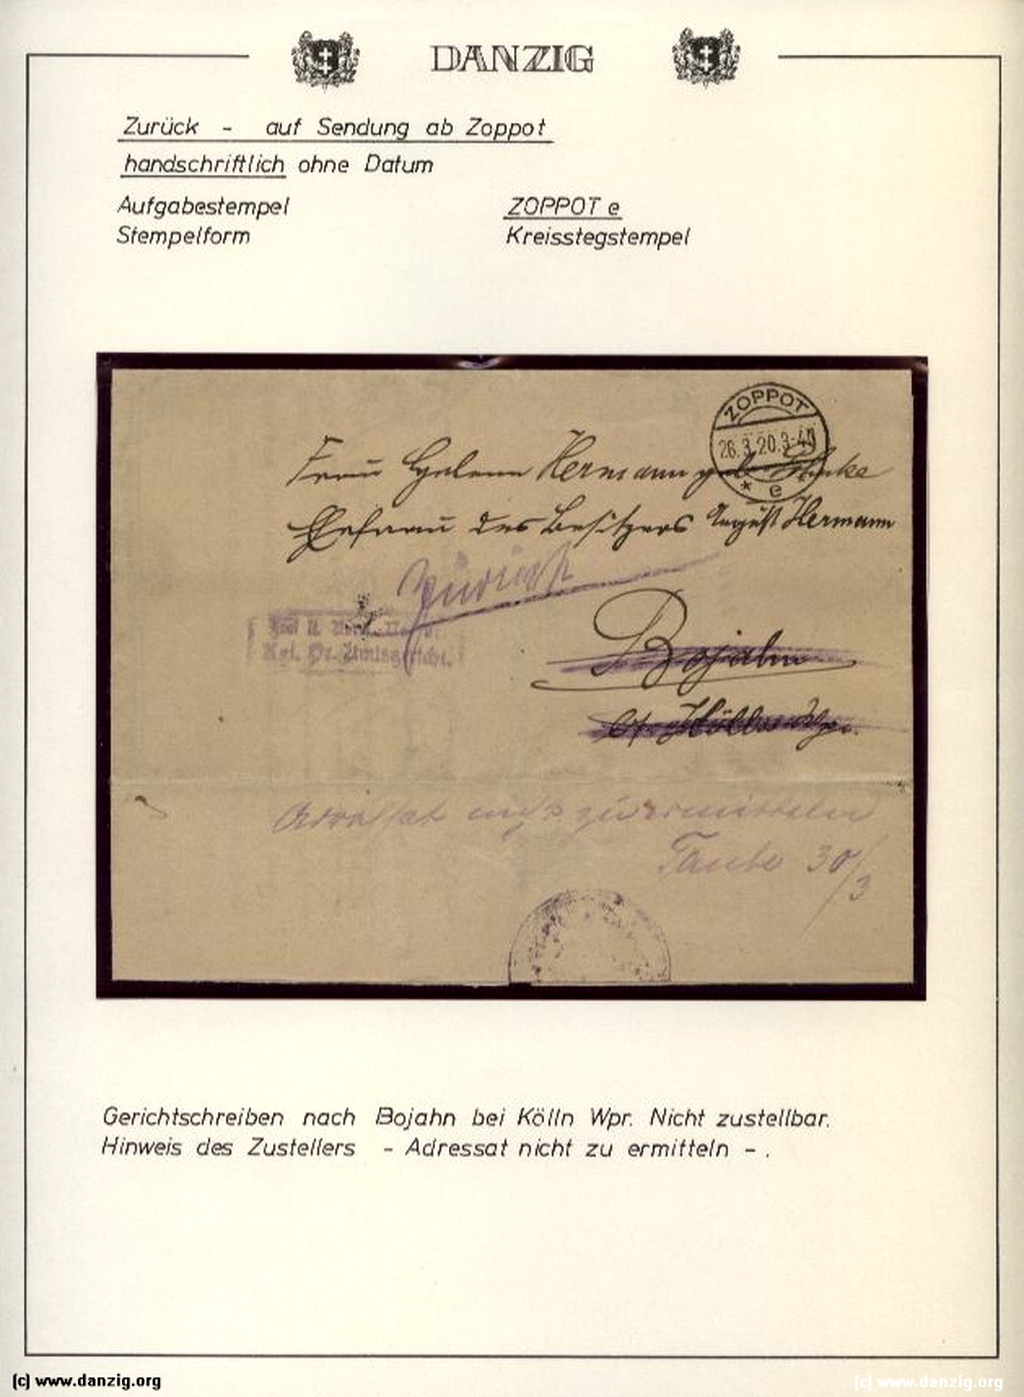 DANZIG
Zurück - auf Sendung ab Zoppot
handschriftlich ohne Datum
Aufgabestempel ZOPPOT e
Stempelform Kreisstegstempel
ZOPPOT
26.3.20.3-4N
* e
Frau Helene Hermann geb.
Ehefrau des Besitzers August Hermann
Zurück
Kgl. Pr. Amtsgericht.
Bojahn
Kölln Wpr.
Adressat nicht zu ermitteln
30/3
Gerichtschreiben nach Bojahn bei Kölln Wpr. Nicht zustellbar.
Hinweis des Zustellers - Adressat nicht zu ermitteln - .
(c) www.danzig.org (c) www.danzig.org